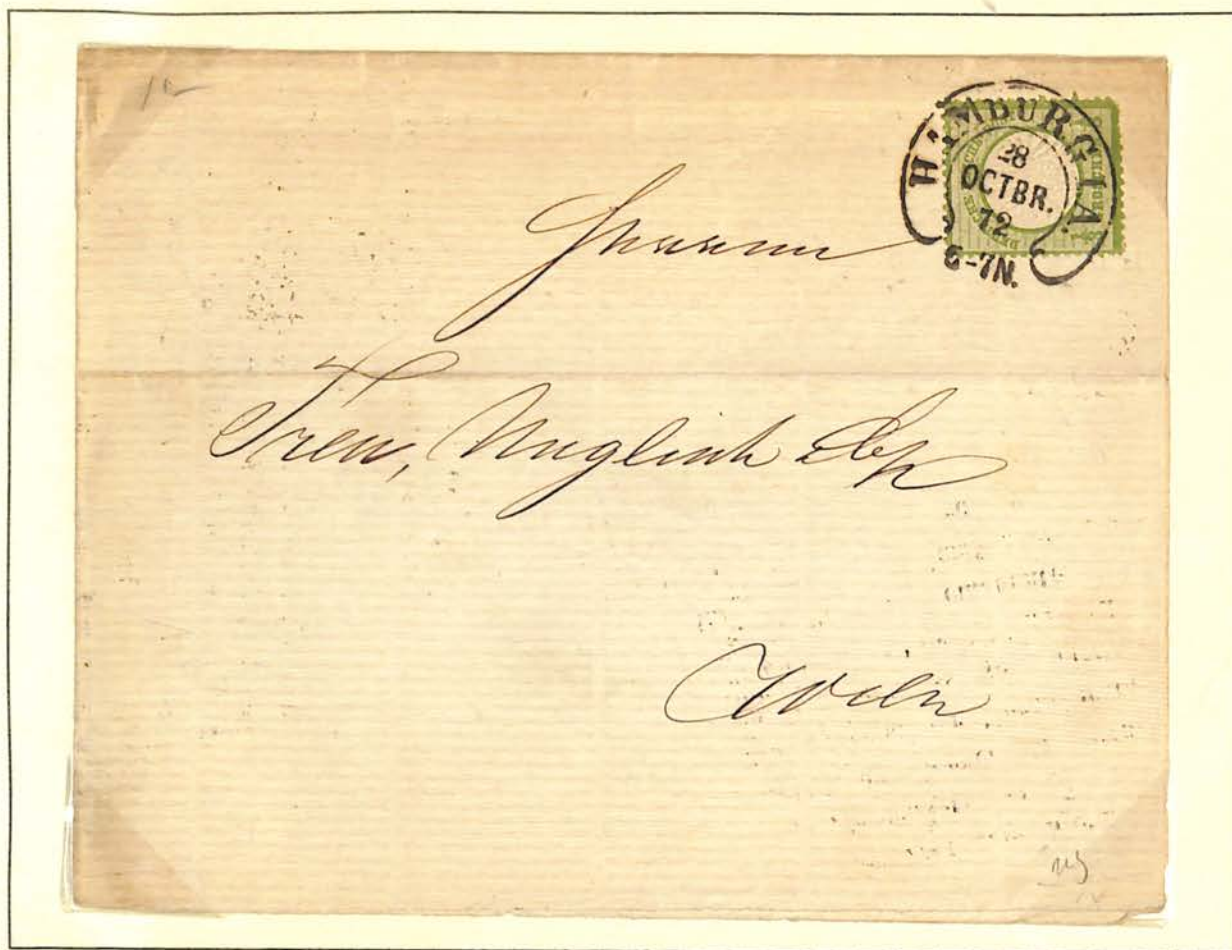 HAMBURG I.A.
28
OCTBR.
72
6-7N.
Herren
Treu, Nuglisch & Co
Wien